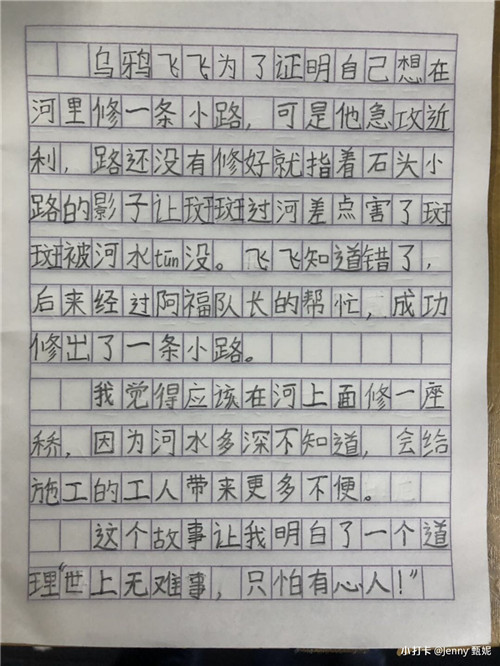 乌鸦飞飞为了证明自己想在
河里修一条小路，可是他急攻近
利，路还没有修好就指着石头小
路的影子让斑斑过河差点害了斑
斑被河水tūn没。飞飞知道错了，
后来经过阿福队长的帮忙，成功
修出了一条小路。
我觉得应该在河上面修一座
桥，因为河水多深不知道，会给
施工的工人带来更多不便。
这个故事让我明白了一个道
理"世上无难事，只怕有心人！"
小打卡 @jenny 甄妮